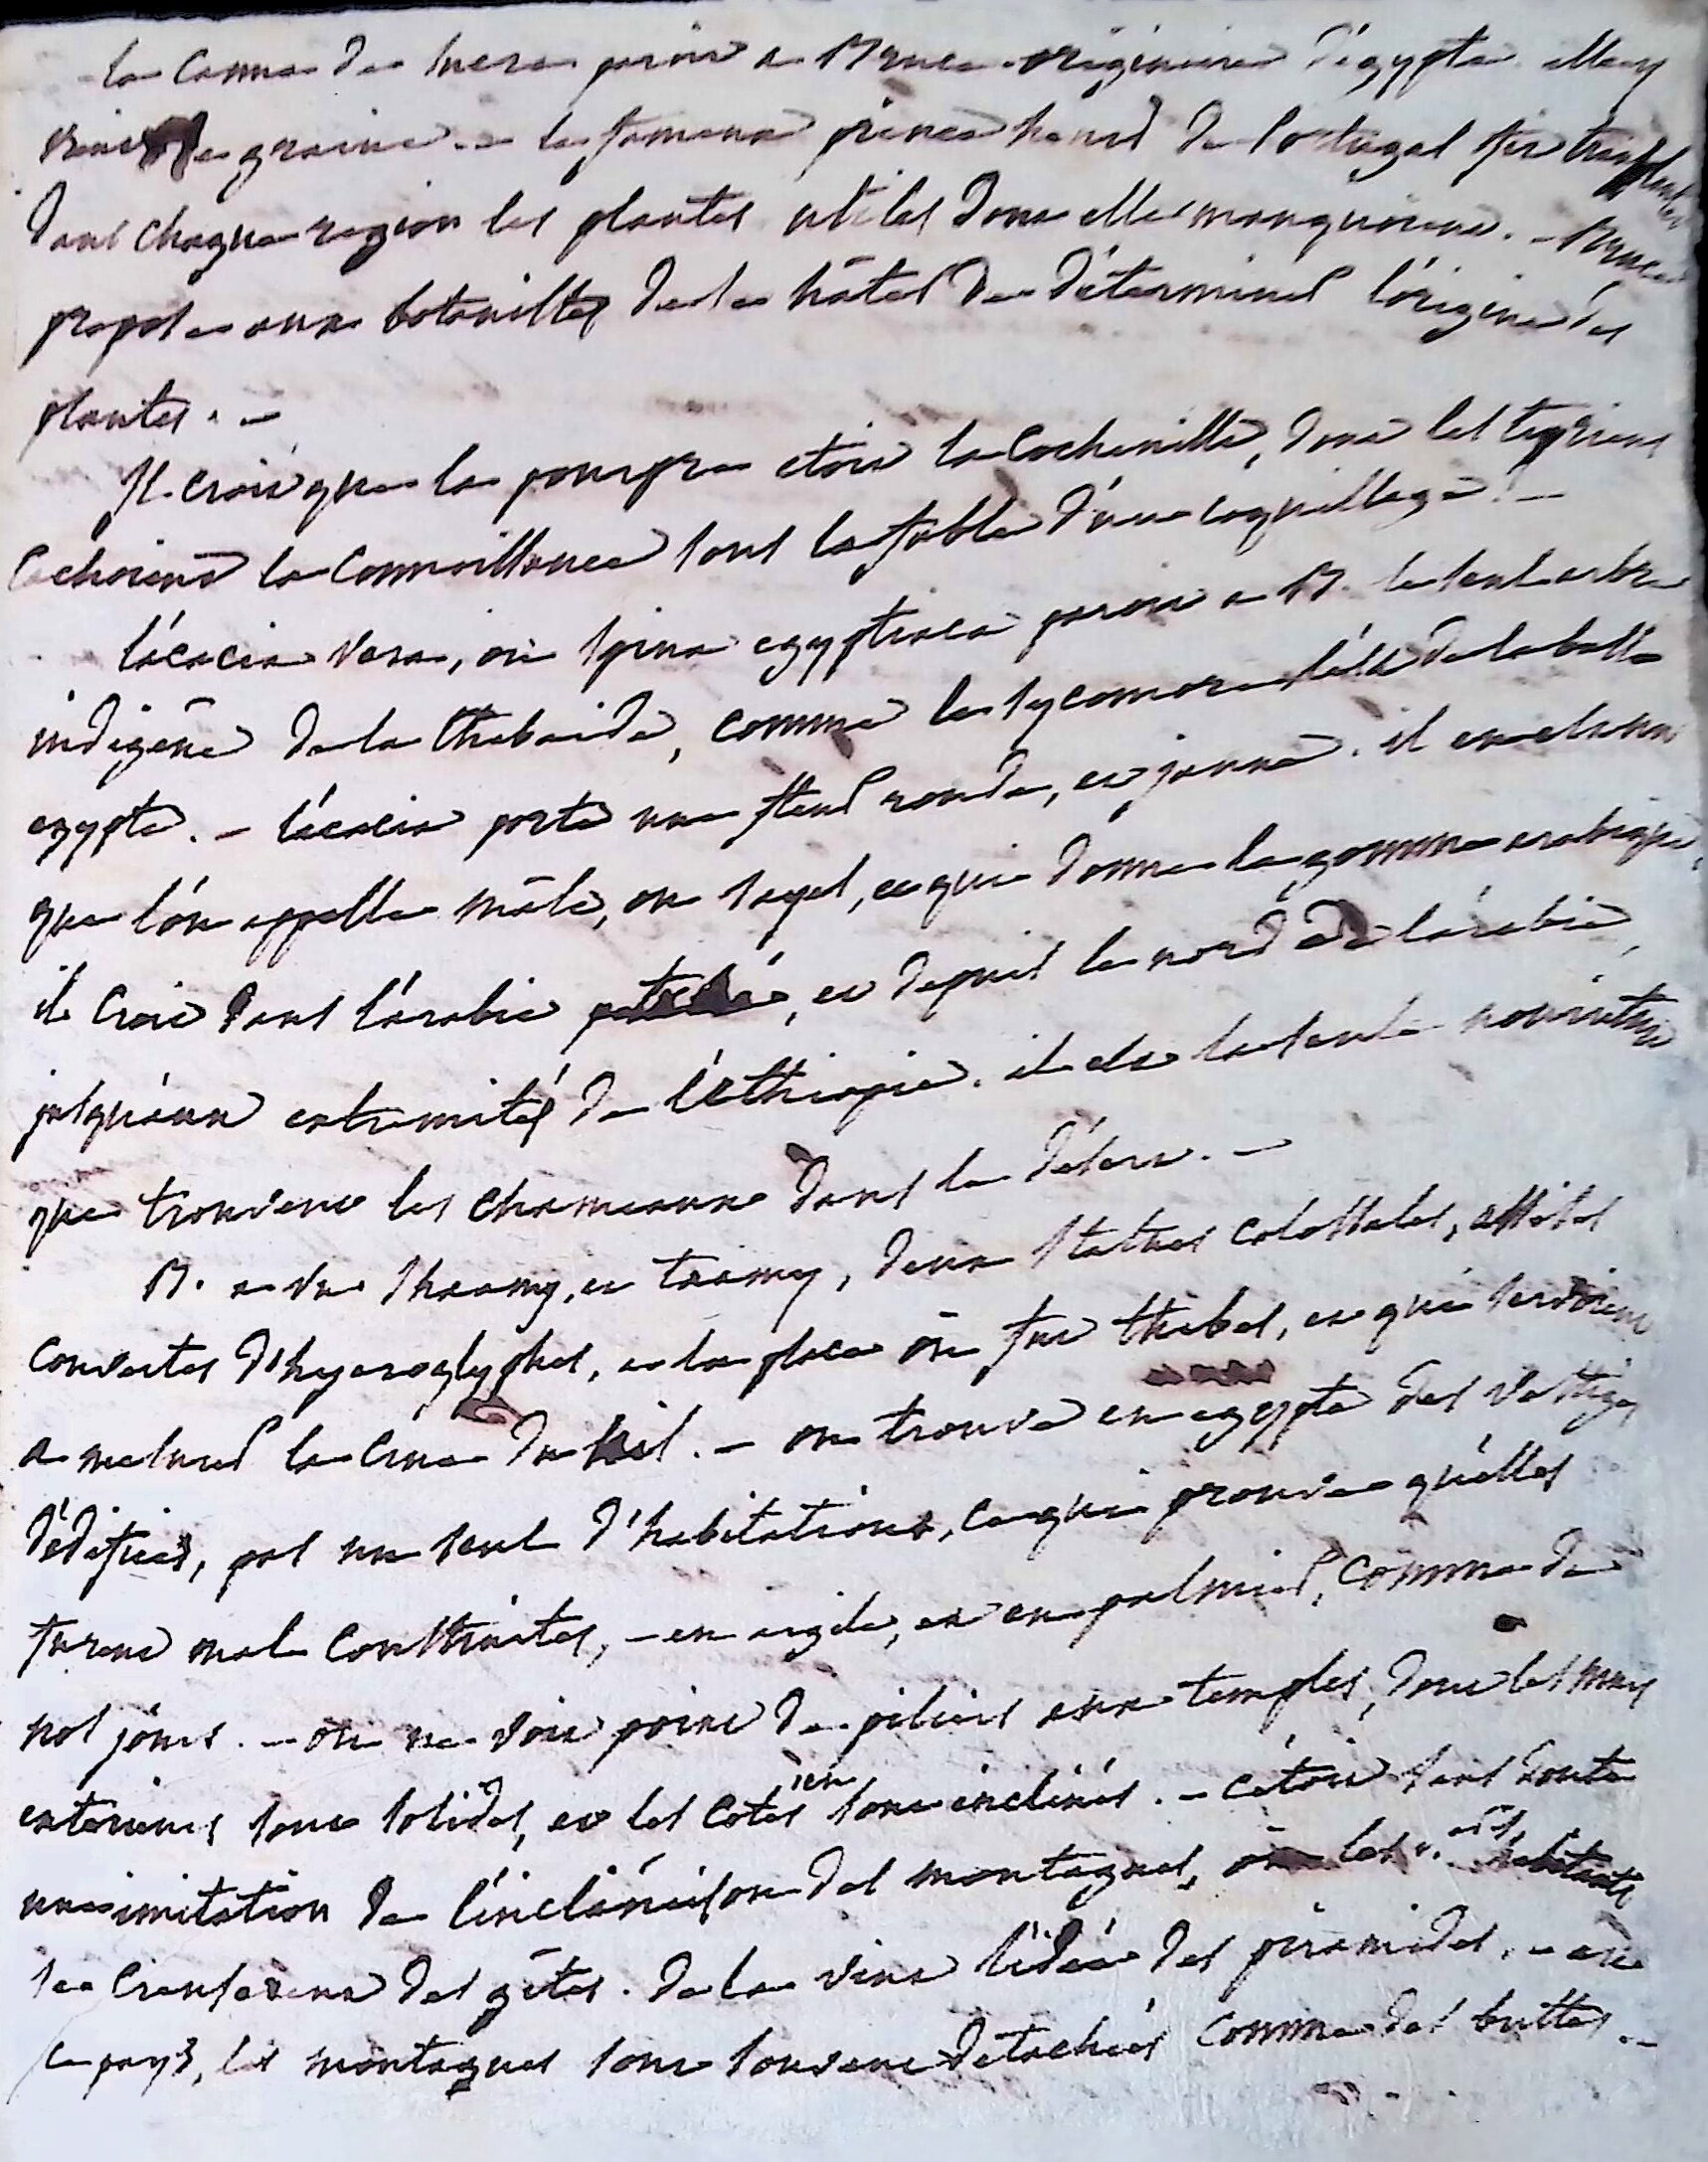 la Canne de sucre paroit a Bruce originaire d'égypte. elle y
vient de graine. — le fameux prince henri de Portugal fit transplanter
dans chaque region les plantes utiles dont elles manquoient. — Bruce
propose aux botanistes de se hâter de déterminer l'origine des
plantes. —
Il croit que la pourpre etoit la Cochenille, dont les tyriens
Cachoient la Connoissance sous la fable d'un coquillage. —
l'acacia vera, ou spina egyptiaca paroit a B. le seul arbre
indigêne de la thebaide, comme le sycomore l'est de la basse
egypte. — l'acacia porte une fleur ronde, et jaune. il en est un
que l'on appelle mâle, ou sayel, et qui donne la gomme arabique,
il Croit dans l'arabie petrée, et depuis le nord de l'arabie,
jusqu'aux extremités de l'Ethiopie. il est la seule nourriture
que trouvent les chameaux dans le désert. —
B. a vu Shaamy, et taamy, deux statues colossales, assises
couvertes d'hyeroglyphes, a la place où fut thèbes, et qui servoient
a mesurer la Crue du Nil. — on trouve en egypte des vestiges
d'édifices, pas un seul d'habitations, ce qui prouve qu'elles
furent mal construites, — en argile, et en palmier, comme de
nos jours. — on ne voit point de piliers aux temples, dont les murs
exterieurs sont solides, et les cotés en sont inclinés. — c'étoit sans doute
une imitation de l'inclinaison des montagnes, où les habitants
se creuserent des gîtes. de la vint l'idée des piramides. — en
ce pays, les montagnes sont souvent detachées comme des buttes. —